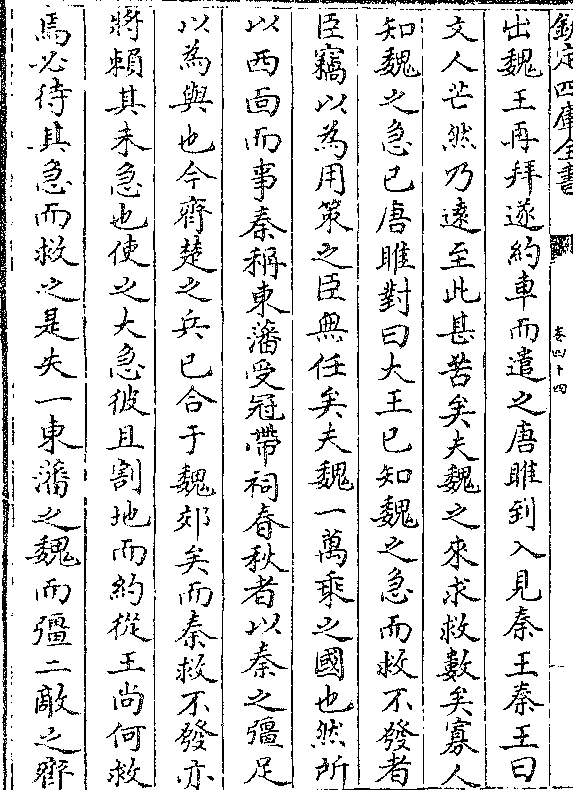 欽定四庫全書
卷四十四
出魏王再拜遂約車而遣之唐雎到入見秦王秦王曰
丈人芒然乃遠至此甚苦矣夫魏之來求救數矣寡人
知魏之急已唐雎對曰大王已知魏之急而救不發者
臣竊以為用策之臣無任矣夫魏一萬乘之國也然所
以西面而事秦稱東藩受冠帶祠春秋者以秦之彊足
以為與也今齊楚之兵已合于魏郊矣而秦救不發亦
將賴其未急也使之大急彼且割地而約從王尚何救
焉必待其急而救之是失一東藩之魏而彊二敵之齊